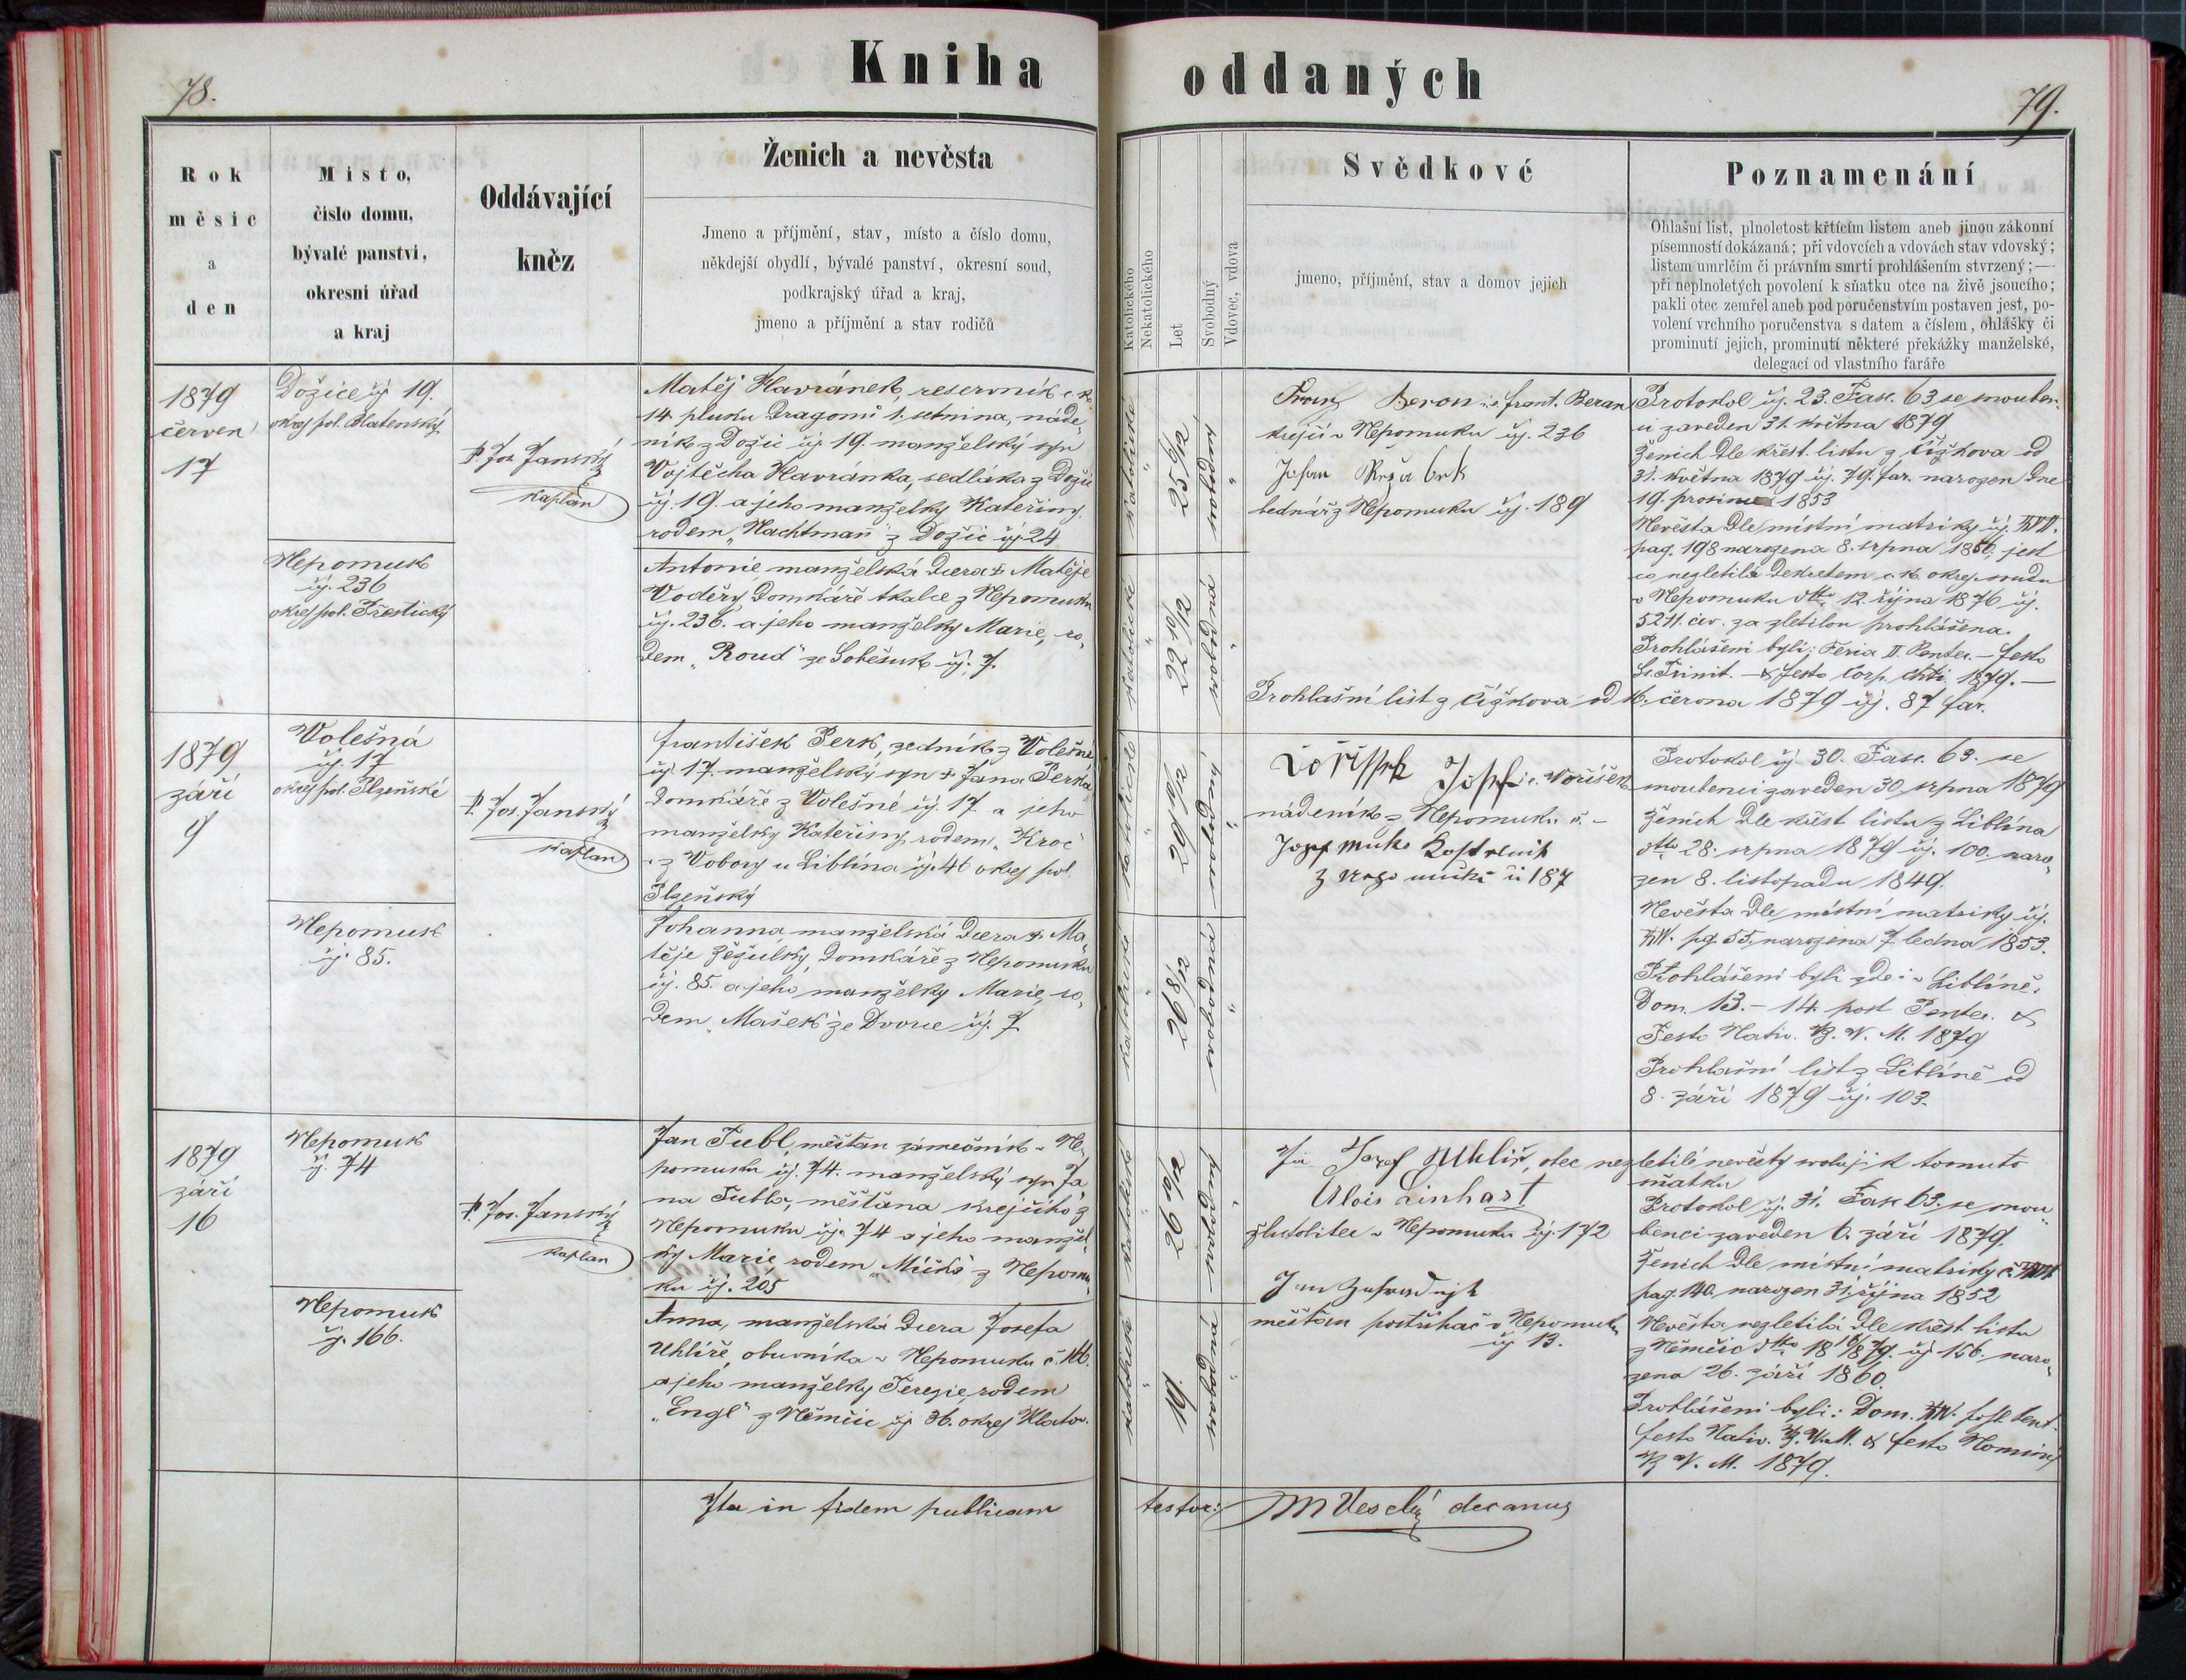 78.
Kniha oddaných
79.
Rok
měsíc
a
den
Místo,
číslo domu,
bývalé panství,
okresní úřad
a kraj
Oddávající
kněz
Ženich a nevěsta
Jmeno a příjmění, stav, místo a číslo domu,
někdejší obydlí, bývalé panství, okresní soud,
podkrajský úřad a kraj,
jmeno a příjmění a stav rodičů
Katolického
Nekatolického
Let
Svobodný
Vdovec, vdova
Svědkové
jmeno, příjmění, stav a domov jejich
Poznamenání
Ohlašní list, plnoletost křtícím listem aneb jinou zákonní
písemností dokázaná; při vdovcích a vdovách stav vdovský;
listem umrlčím či právním smrti prohlášením stvrzený;—
při neplnoletých povolení k sňatku otce na živě jsoucího;
pakli otec zemřel aneb pod poručenstvím postaven jest, po-
volení vrchního poručenstva s datem a číslem, ohlášky či
prominutí jejich, prominutí některé překážky manželské,
delegací od vlastního faráře
1879
červen
17
Dožice čj 19.
okrej pol. Blatenský
P. Jos. Janský
kaplan
Matěj Havránek, reservník c. k.
14. pluku Dragonů 1. setnina, náde„
ník z Dožic čj. 19. manželský syn
Vojtěcha Havránka, sedláka z Dožic
čj. 19. a jeho manželky Kateřiny,
rodem „Nachtman“ z Dožic čj. 24
katolické
25 6/12
svobodný
Nepomuk
čj. 236
okrej pol. Přestický
Antonie manželská dcera † Matěje
Voděry domkáře tkalce z Nepomuku
čj. 236. a jeho manželky Marie, ro„
dem „Roud“ ze Soběsuk čj. 7.
katolické
22 10/12
svobodná
Franz Beron i.e. Frant. Beran
krejčí v Nepomuku čj. 236
bednář z Nepomuku čj. 189
Protokol čj. 23. Fasc. 63 se snouben-
ci zaveden 31. května 1879
Ženich dle křest. listu z Čížkova od
31. května 1879 čj. 79. far. narozen dne
19. prosince 1853
Nevěsta dle místní matriky čj.
pag. 198 narozena 8. srpna 1856, jest
co nezletilá dekretem c. k. okrej. soudu
v Nepomuku dtto 12. října 1876 čj.
5271. civ. za zletilou prohlášena.
Prohlášeni byli: Feria II. Pentec. — festo
Ss. Trinit. — & festo Corp. Chti 1879. —
Prohlašní list z Čížkova od 16. června 1879 čj. 87 far.
1879
září
9
Volešná
čj. 17
okrej pol. Plzeňské
P. Jos. Janský
kaplan
František Perk, zedník z Volešné
čj. 17. manželský syn † Jana Perka
domkáře z Volešné čj. 17. a jeho
manželky Kateřiny, rodem „Kroc“
z Vobory u Liblína čj. 46 okrej pol.
Plzeňský
katolické
29 10/12
svobodný
Nepomuk
čj. 85.
Johanna manželská dcera † Ma„
těje Žežulky, domkáře z Nepomuku
čj. 85. a jeho manželky Marie, ro„
dem „Mašek“ ze Dvorce čj. 7.
katolické
26 8/12
svobodná
Josef i.e. Voříšek
nádeník z Nepomuku
Protokol čj. 30. Fasc. 63. se
snoubenci zaveden 30. srpna 1879
Ženich dle křest listu z Liblína
dtto 28. srpna 1879 čj. 100. naro„
zen 8. listopadu 1849.
Nevěsta dle místní matriky čj.
pg. 55. narozena 7. ledna 1853.
Prohlášeni byli zde i v Liblíně.
Dom. 13. – 14. post Pentec. &
Festo Nativ. B. V. M. 1879
Prohlašní list z Liblíně od
8. září 1879 čj. 103.
1879
září
16
Nepomuk
čj. 74
P. Jos. Janský
kaplan
Jan Tubl, měšťan zámečník v Ne„
pomuku čj. 74. manželský syn Ja„
na Tubla, měšťana krejčího z
Nepomuku čj. 74 a jeho manžel„
ky Marie, rodem „Míčko“ z Nepomu„
ku čj. 205
katolické
26 10/12
svobodný
Nepomuk
čj. 166.
Anna, manželská dcera Josefa
Uhlíře, obuvníka v Nepomuku č. 166.
a jeho manželky Terezie, rodem
„Engl“ z Němčic čj. 36. okrej Klatov.
katolické
19.
svobodná
Já Josef Uhlíř, otec nezletilé nevěsty svoluji k tomuto
sňatku
Alois Linhart
v Nepomuku čj. 172
Jan
měšťan postřihač v Nepomuku
čj 13.
Protokol čj. 31. Fasc 63. se snou„
benci zaveden 6. září 1879.
Ženich dle místní matriky
pag. 140, narozen 31. října 1852
Nevěsta nezletilá dle křest listu
z Němčic dtto 18 16/8 79. čj 156. naro„
zena 26. září 1860.
Prohlášeni byli: Dom. post Pent.
festo Nativ. B. V. M. & festo Nominis
B. V. M. 1879.
Ita in fidem publicam testor: M Veselý decanus